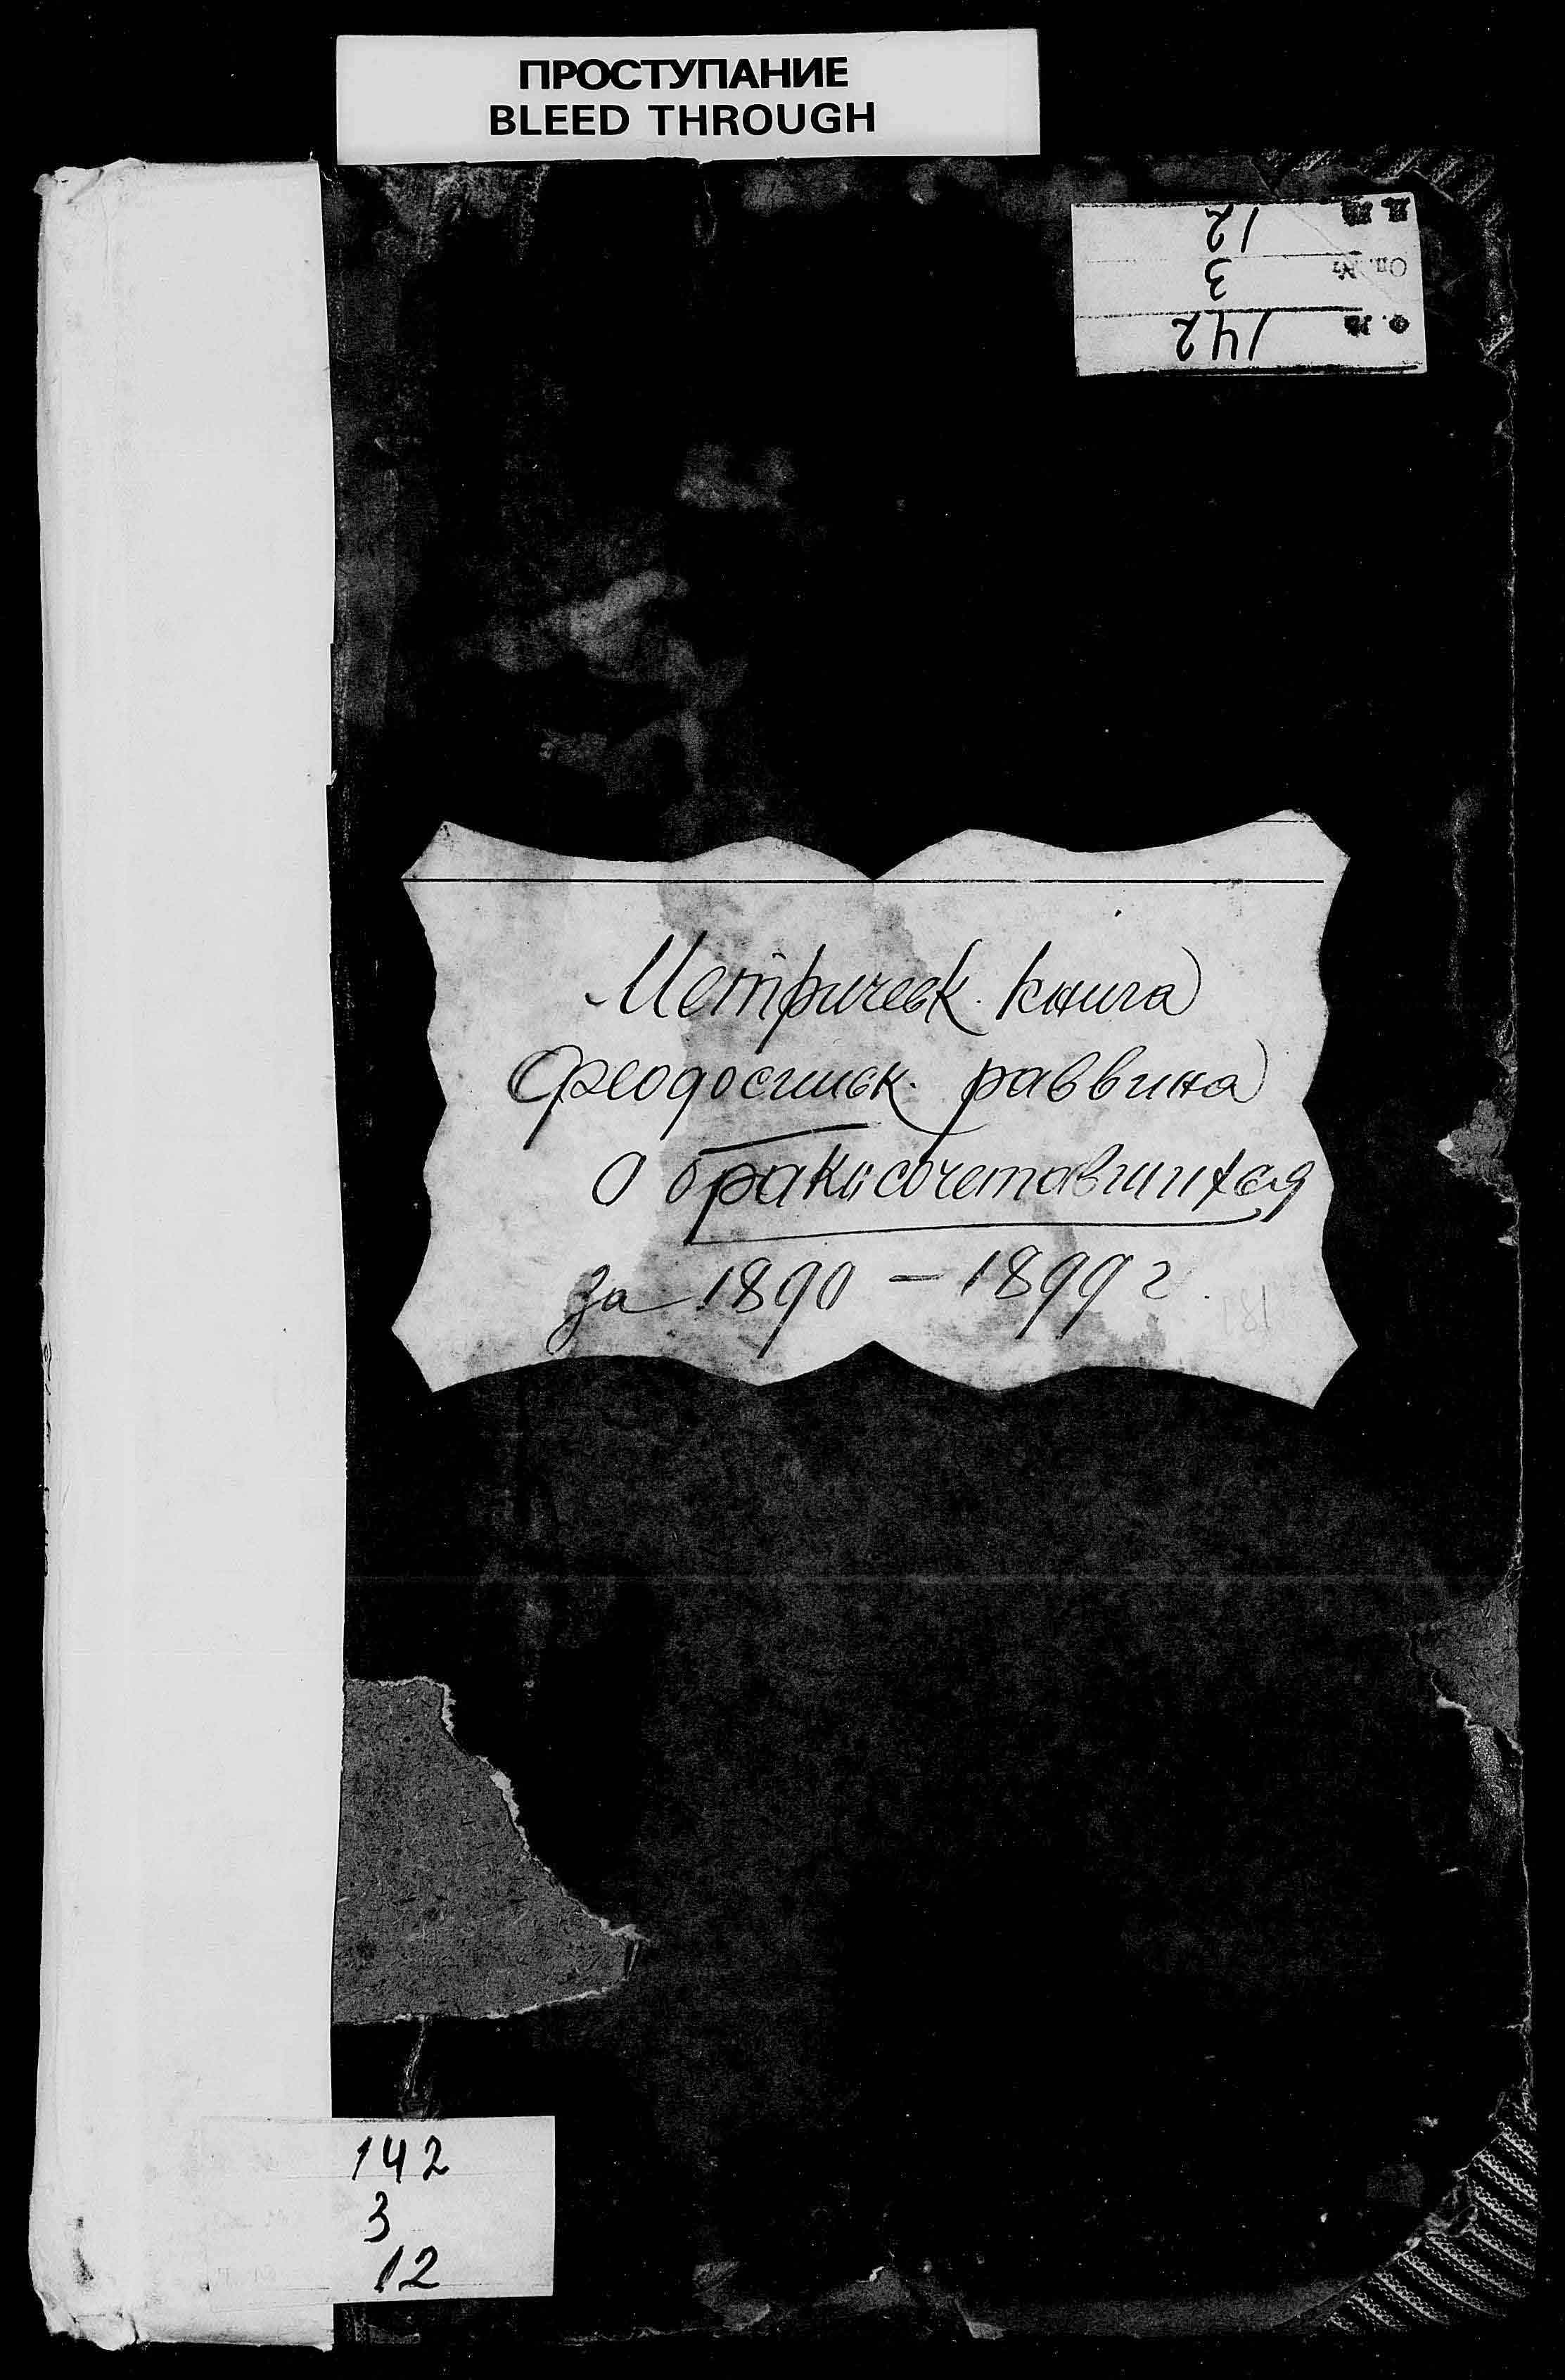 ПРОСТУПАНИЕ
BLEED THROUGH
Ф. № 142
Оп. № 3
Д. № 12
Метрическ. книга
феодосийск. раввина
о бракосочетавшихся
за 1890 – 1899 г.
181
142
3
12